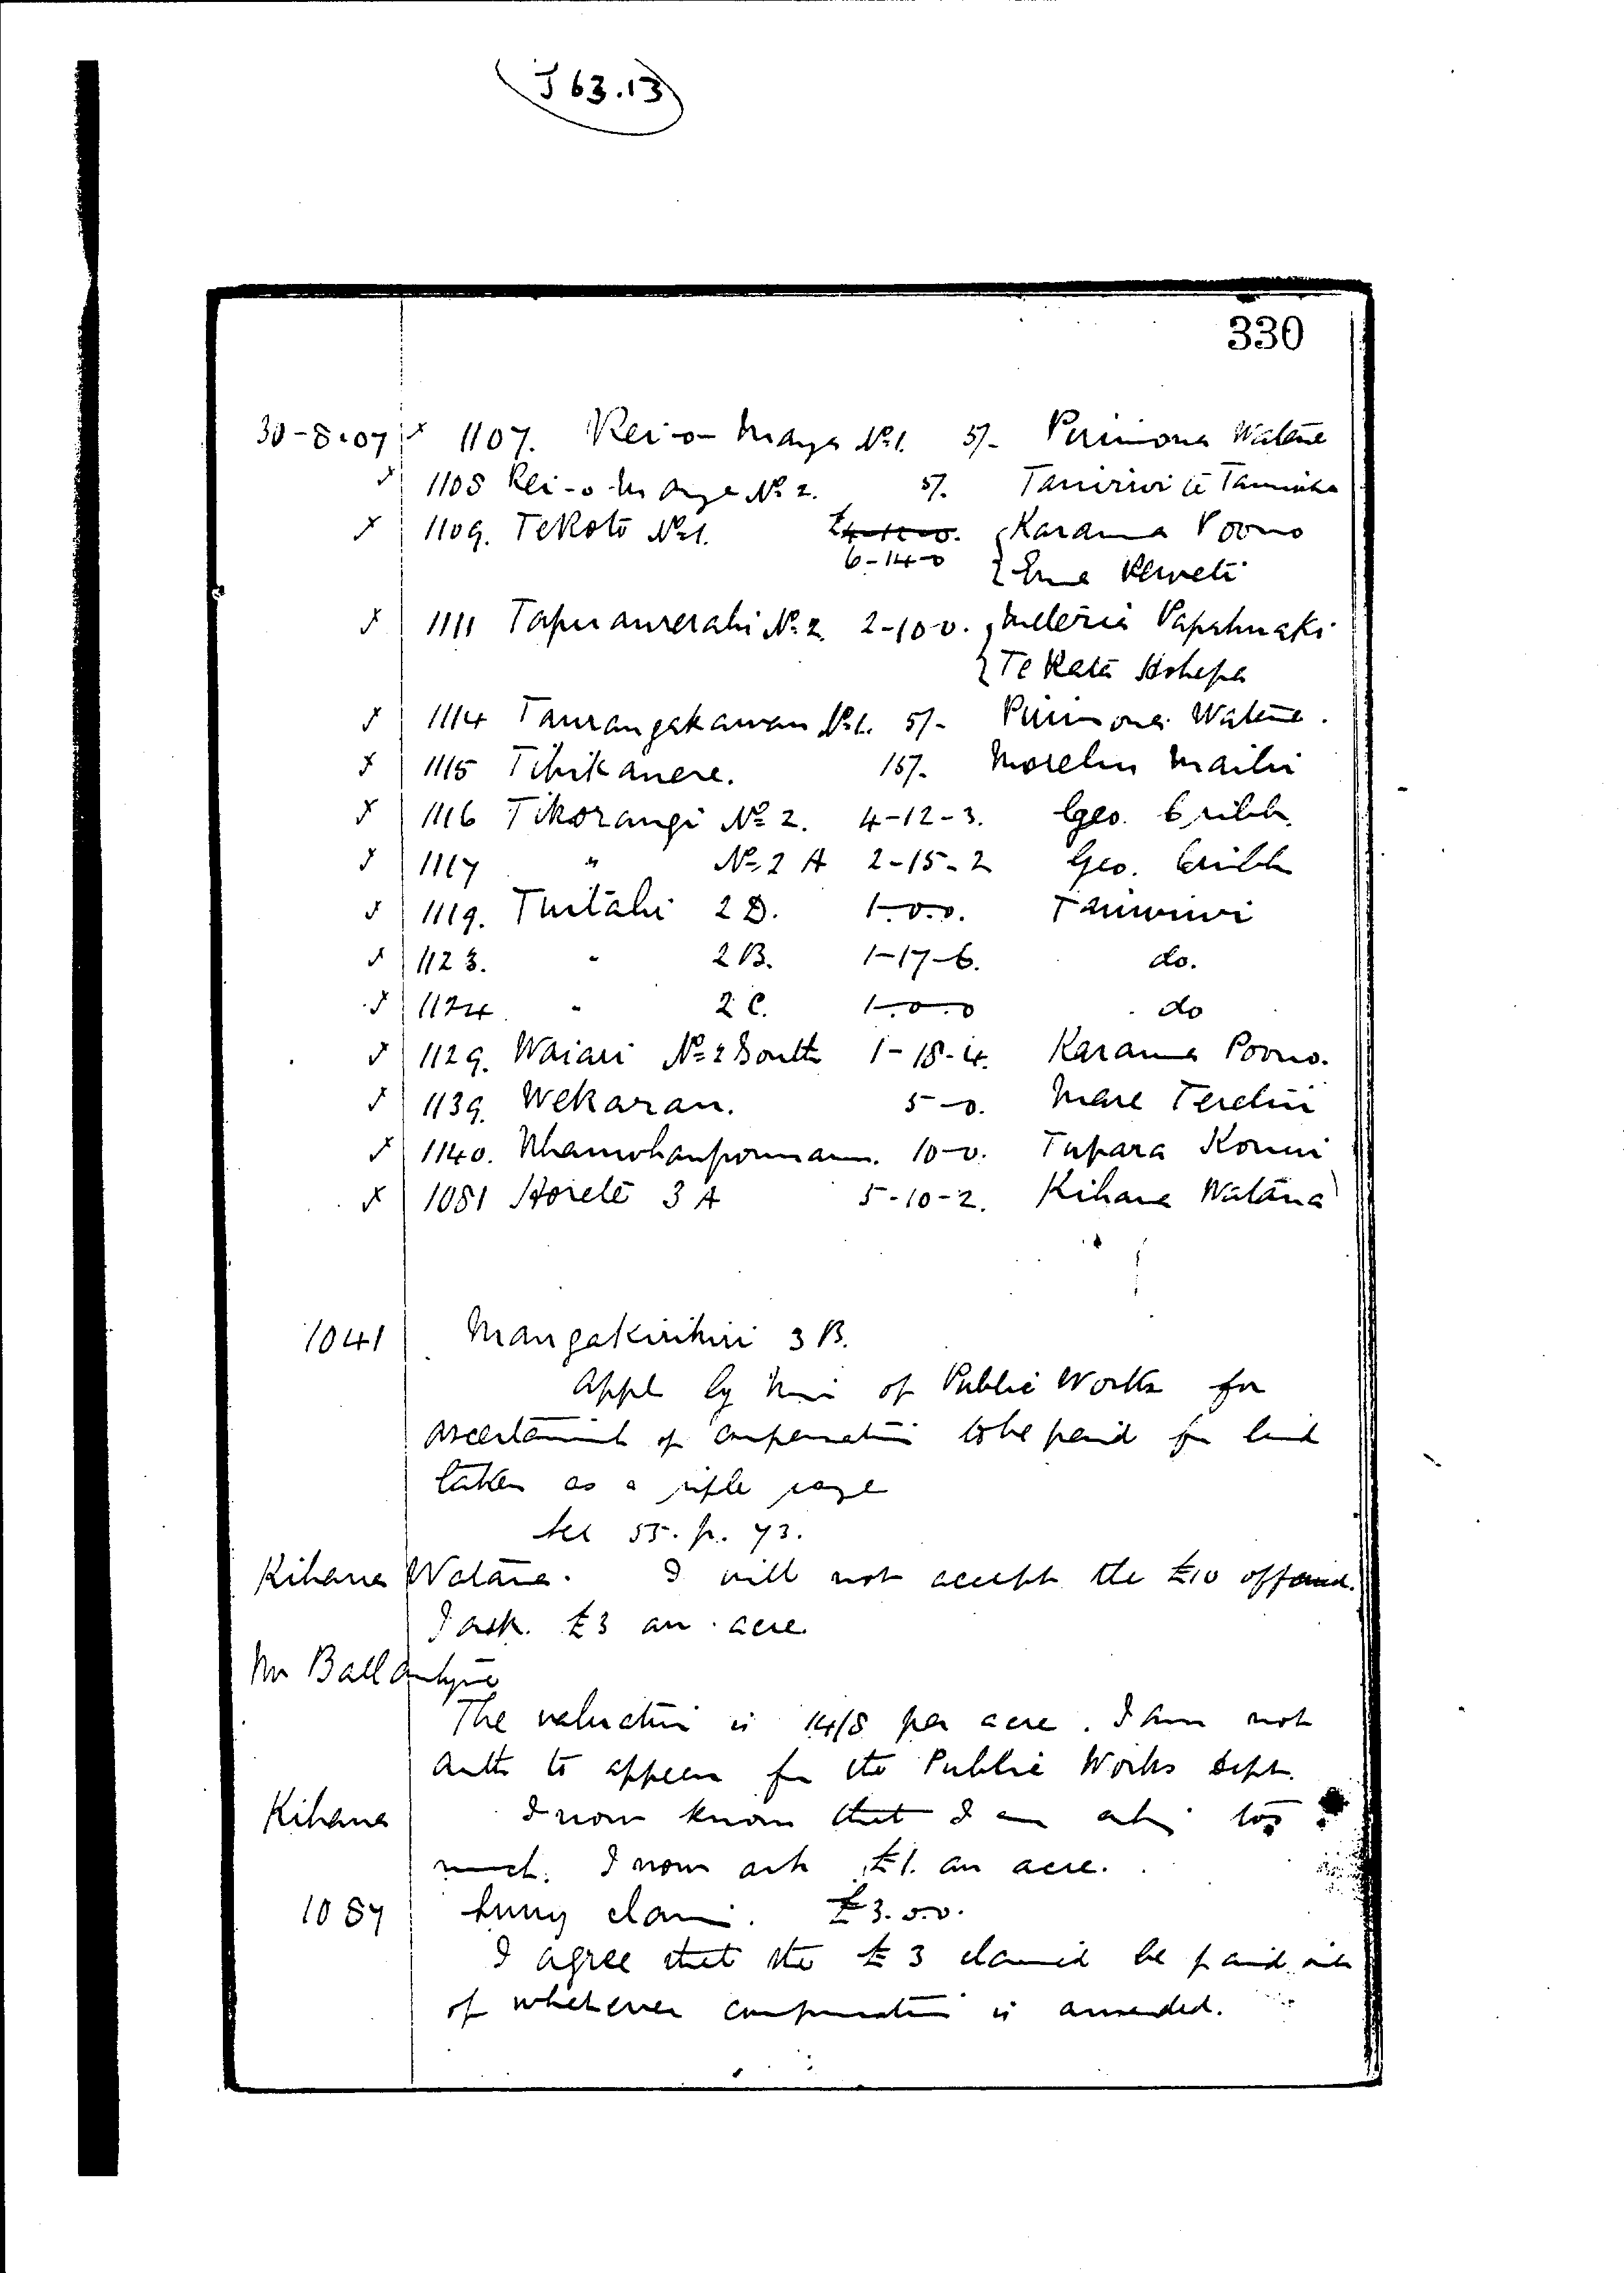 J 63.13
330
30-8-07 x 1107. Rei-o-Manga No 1. 5/- Pirimona Watene
x 1108 Rei-o-Manga No 2. 5/- Taniwiwi te
x 1109. Te Koto No 1. Karama Poono
6-14-0 Erua
x 1111 No 2. 2-10-0. Meteria
Te Kata Hohepa
x 1114 No 1. 5/- Pirimona Watene.
x 1115 Tihikanere. 15/-
x 1116 Tikorangi No 2. 4-12-3. Geo. Cribb.
x 1117 " No 2 A 2-15-2 Geo. Cribb
x 1119. Tuitahi 2 D. 1-0-0. Taniwiwi
x 1123. " 2 B. 1-17-6. do.
x 1124. " 2 C. 1-0-0 do
x 1129. Waiari No 2 South 1-18-4. Karama Poono.
x 1139. Wekarau. 5-0. Mare Teretiu
x 1140. 10-0. Tupara
x 1081 Horete 3 A 5-10-2. Kihana Watana
1041 Mangakirikiri 3 B.
Appl by Min of Public Works for
ascertainmt of compensation to be paid for land
taken as a rifle range
See 55. p. 73.
Kihana Watana. I will not accept the £10 offered.
I ask £3 an acre.
Mr Ballantyne
The valuation is 14/8 per acre. I am not
auth to appear for the Public Works Dept.
Kihana I now know that I am asking too
much. I now ask £1. an acre.
1087 Survey claim. £3.0.0.
I agree that the £3 claimed be paid out
of whatever compensation is awarded.